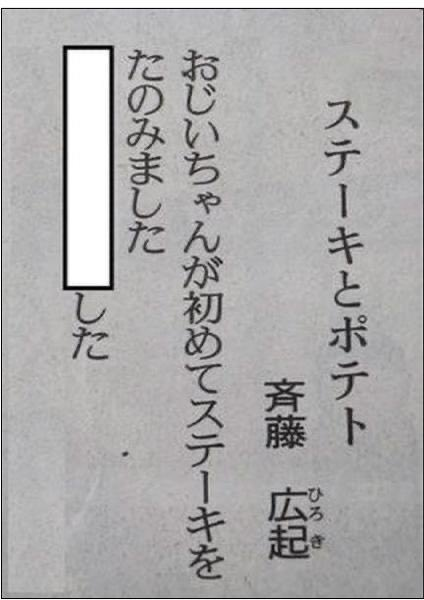 ステーキとポテト
斉藤 広起
ひろき
おじいちゃんが初めてステーキを
たのみました
した